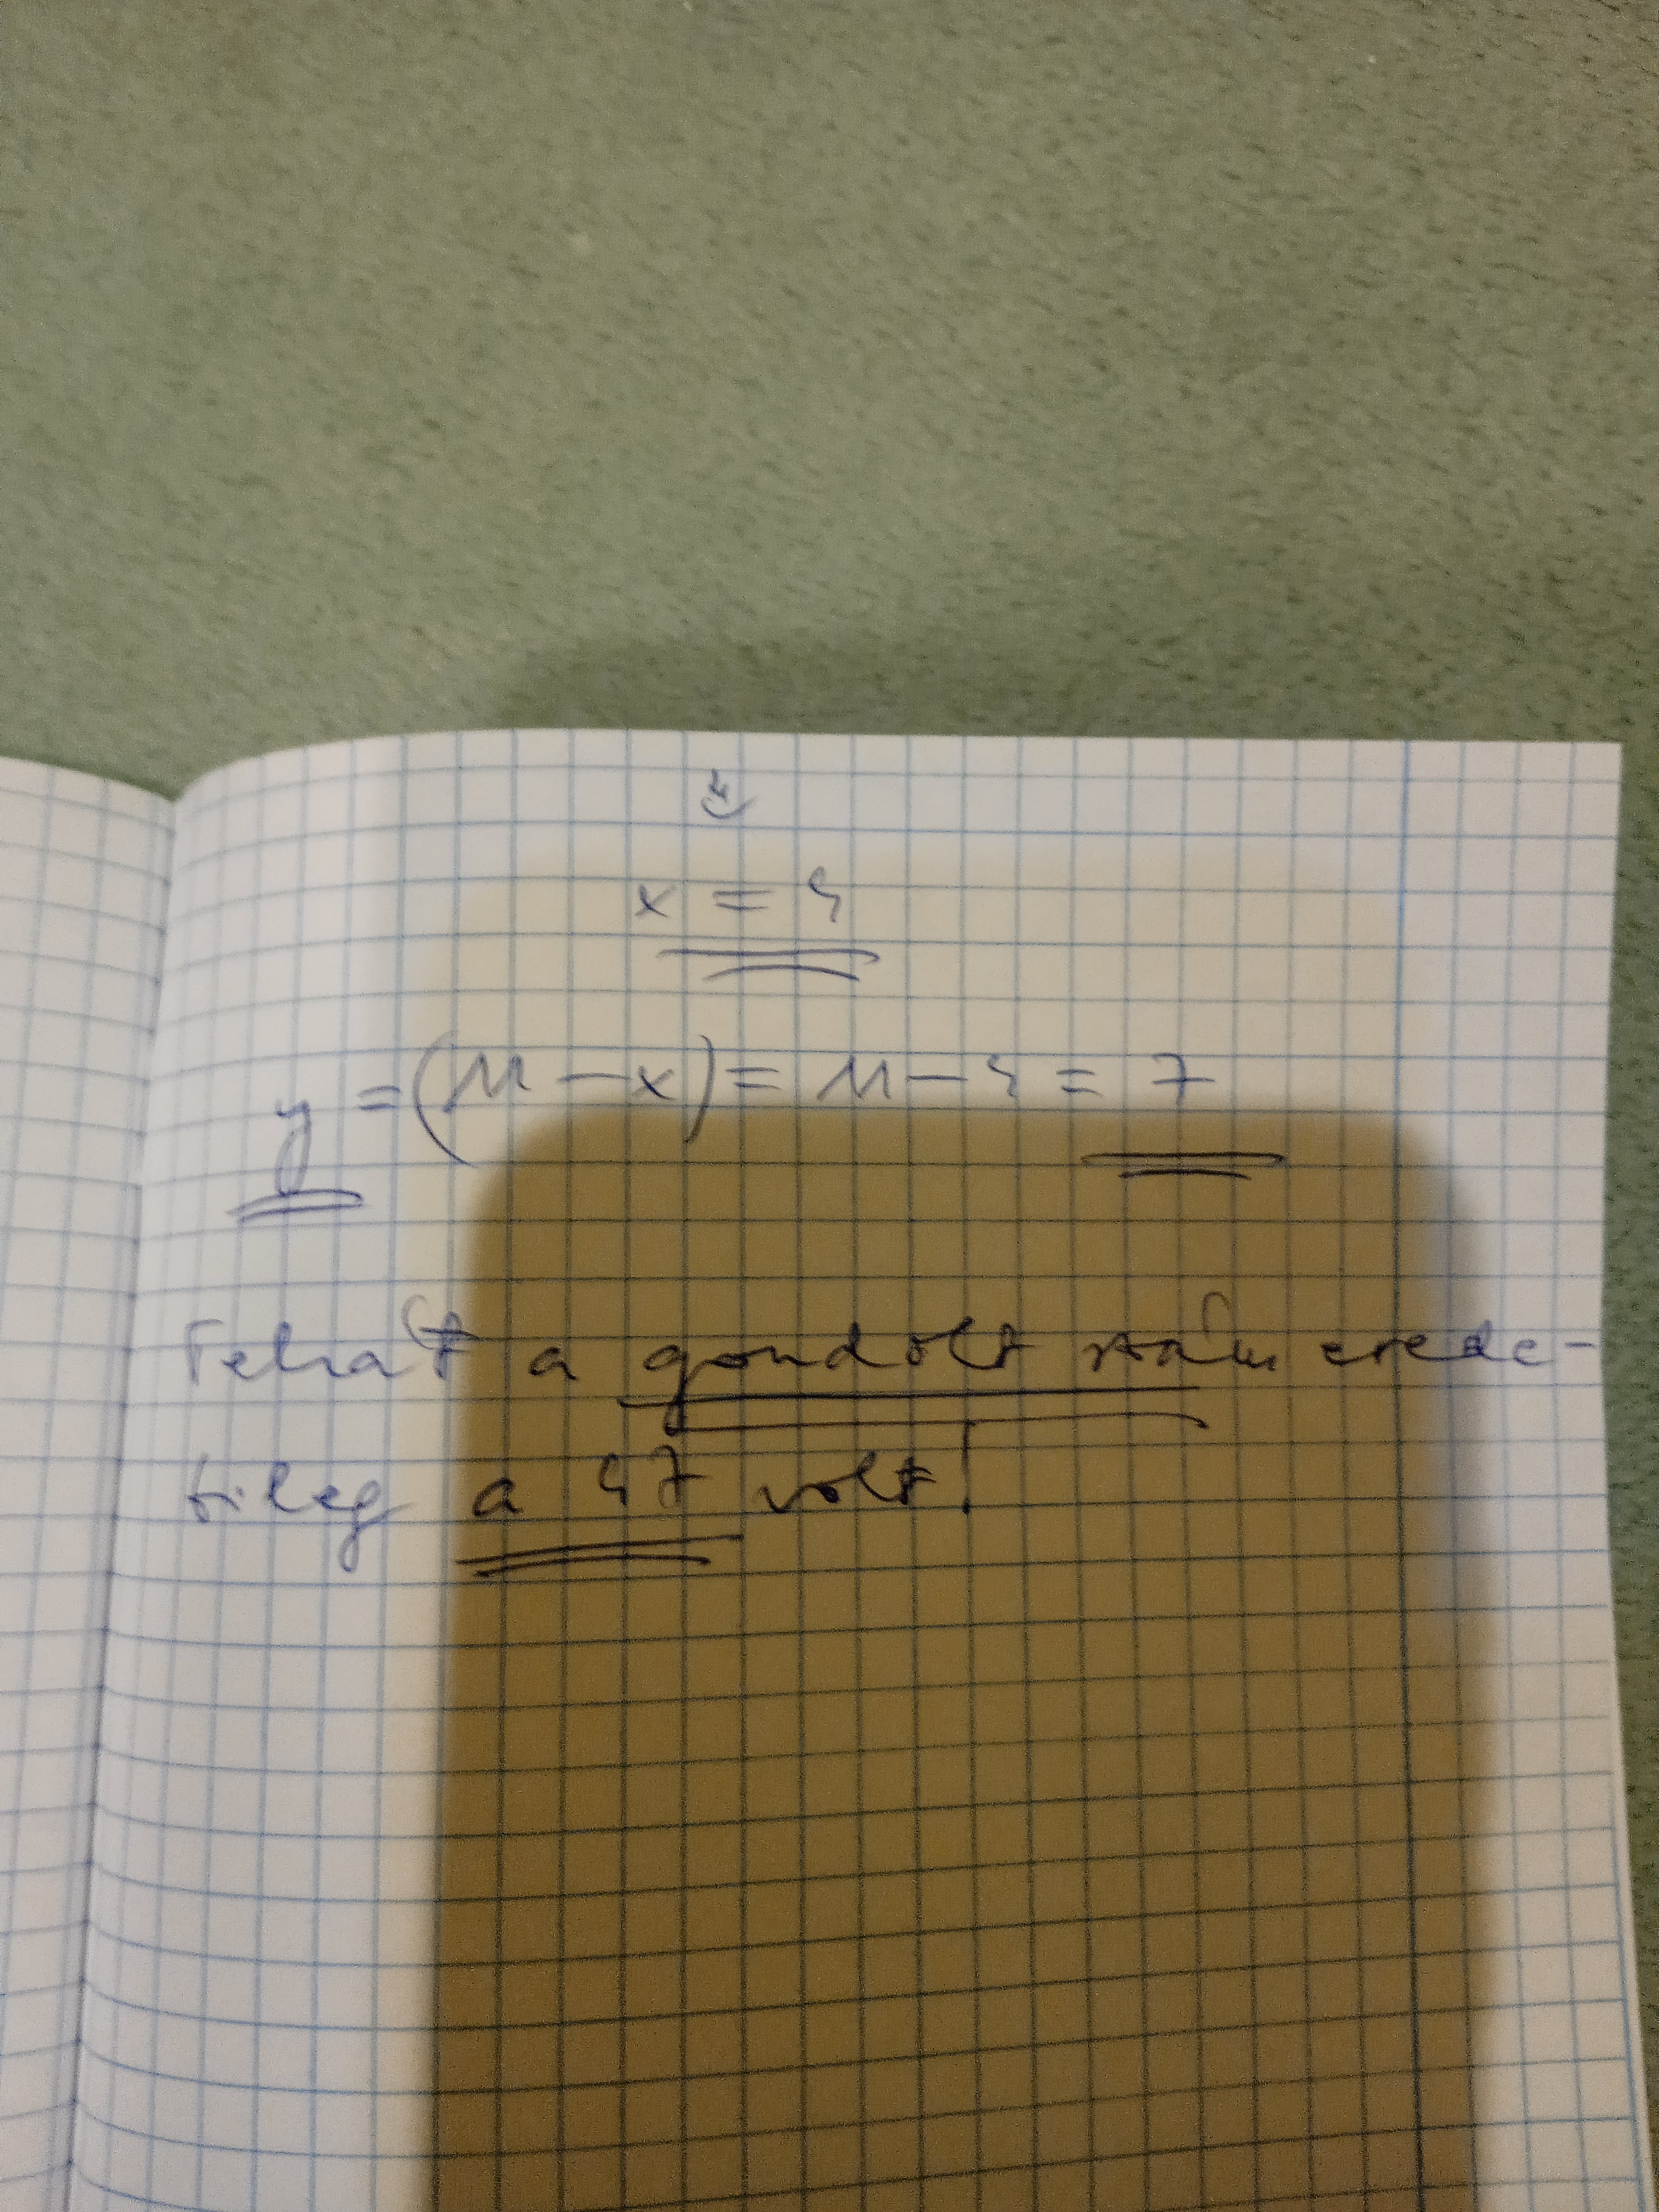 x = 4
y = (11 - x) = 11 - 4 = 7
Tehát a gondolt szám erede-
tileg a 47 volt!